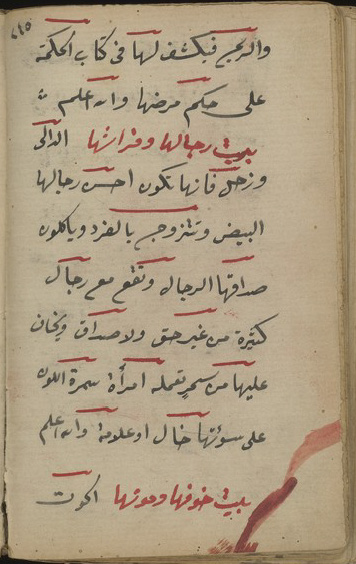 ٢١٥
والريح فيكشف لها فى كتاب الحكمة
على حكم مرضها والله اعلم
بيت رجالها وفراشها الدالى
وزحل فانها تكون احسن رجالها
البيض وتتزوج بالفرد وياكلون
صداقها الرجال وتقع مع رجال
كثيرة من غير حق ولا صداق ويخاف
عليها من سحر تعمله امرأة سمرة اللون
على سوئتها خال او علامة والله اعلم
بيت خوفها وموتها الحوت